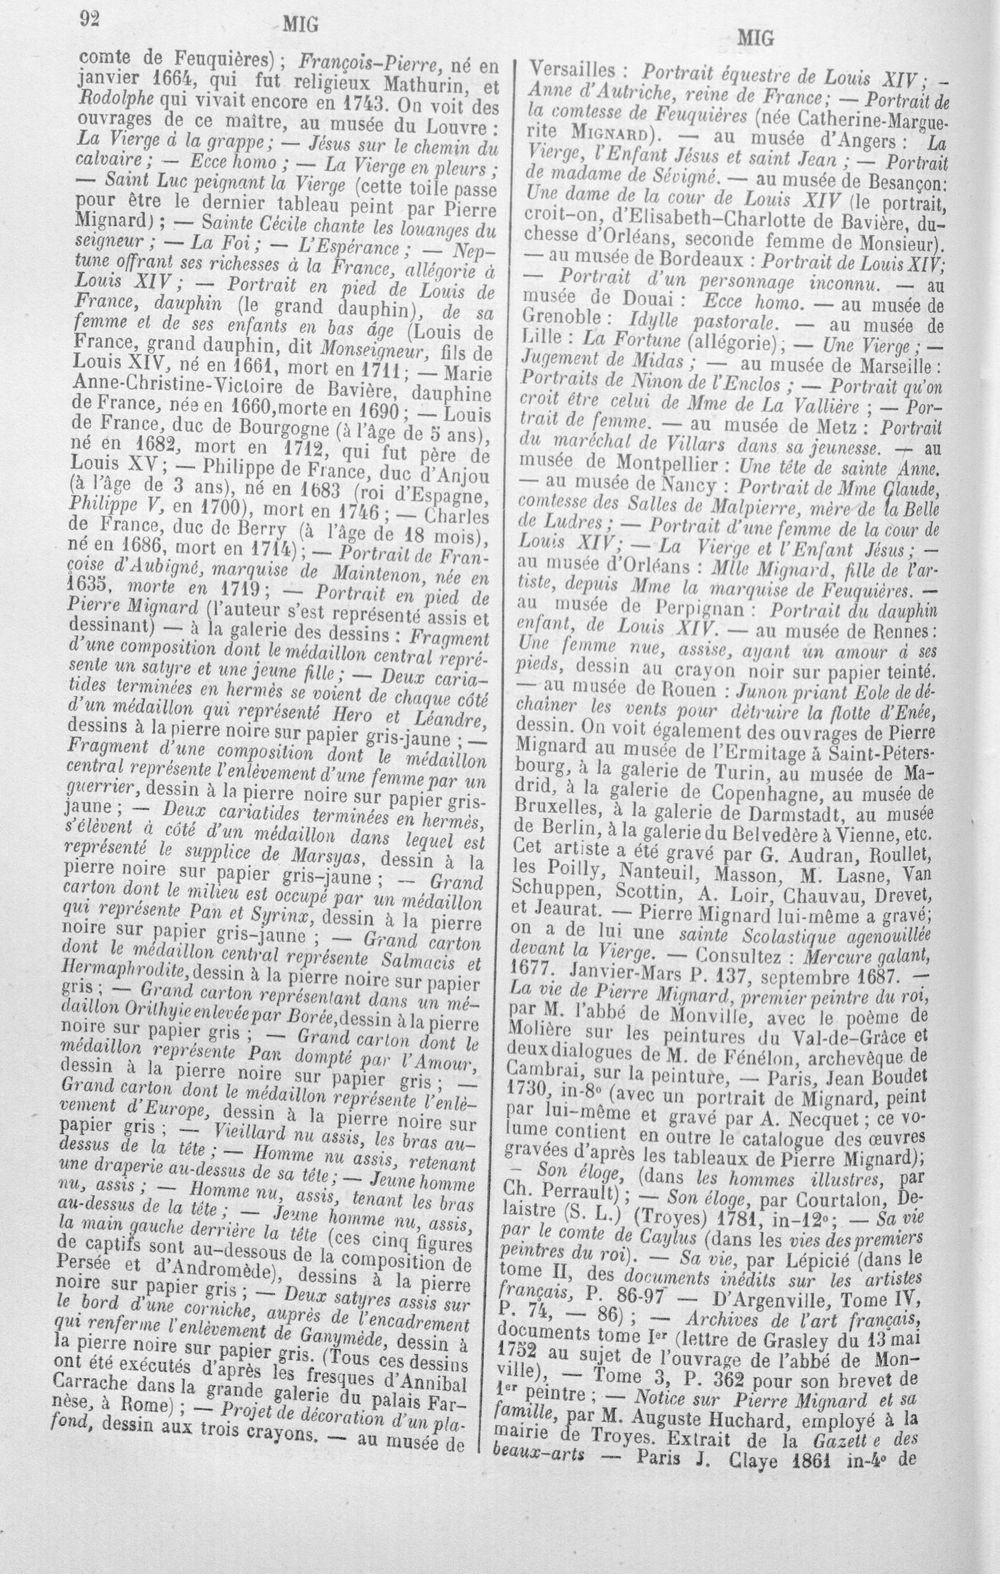 92
MIG
comte de Feuquières) ; François-Pierre, né en
janvier 1664, qui fut religieux Mathurin, et
Rodolphe qui vivait encore en 1743. On voit des
ouvrages de ce maître, au musée du Louvre :
La Vierge à la grappe ; — Jésus sur le chemin du
calvaire ; — Ecce homo ; — La Vierge en pleurs ;
— Saint Luc peignant la Vierge (cette toile passe
pour être le dernier tableau peint par Pierre
Mignard) ; — Sainte Cécile chante les louanges du
seigneur ; — La Foi ; — L'Espérance ; — Nep-
tune offrant ses richesses à la France, allégorie à
Louis XIV ; — Portrait en pied de Louis de
France, dauphin (le grand dauphin), de sa
femme et de ses enfants en bas âge (Louis de
France, grand dauphin, dit Monseigneur, fils de
Louis XIV, né en 1661, mort en 1711 ; — Marie
Anne-Christine-Victoire de Bavière, dauphine
de France, née en 1660, morte en 1690 ; — Louis
de France, duc de Bourgogne (à l'âge de 5 ans),
né en 1682, mort en 1712, qui fut père de
Louis XV ; — Philippe de France, duc d'Anjou
(à l'âge de 3 ans), né en 1683 (roi d'Espagne,
Philippe V, en 1700), mort en 1746 ; — Charles
de France, duc de Berry (à l'âge de 18 mois),
né en 1686, mort en 1714) ; — Portrait de Fran-
çoise d'Aubigné, marquise de Maintenon, née en
1635, morte en 1719 ; — Portrait en pied de
Pierre Mignard (l'auteur s'est représenté assis et
dessinant) — à la galerie des dessins : Fragment
d'une composition dont le médaillon central repré-
sente un satyre et une jeune fille ; — Deux caria-
tides terminées en hermès se voient de chaque côté
d'un médaillon qui représente Hero et Léandre,
dessins à la pierre noire sur papier gris-jaune ; —
Fragment d'une composition dont le médaillon
central représente l'enlèvement d'une femme par un
guerrier, dessin à la pierre noire sur papier gris-
jaune ; — Deux cariatides terminées en hermès,
s'élèvent à côté d'un médaillon dans lequel est
représenté le supplice de Marsyas, dessin à la
pierre noire sur papier gris-jaune ; — Grand
carton dont le milieu est occupé par un médaillon
qui représente Pan et Syrinx, dessin à la pierre
noire sur papier gris-jaune ; — Grand carton
dont le médaillon central représente Salmacis et
Hermaphrodite, dessin à la pierre noire sur papier
gris ; — Grand carton représentant dans un mé-
daillon Orithyie enlevée par Borée, dessin à la pierre
noire sur papier gris ; — Grand carton dont le
médaillon représente Pan dompté par l'Amour,
dessin à la pierre noire sur papier gris ; —
Grand carton dont le médaillon représente l'enlè-
vement d'Europe, dessin à la pierre noire sur
papier gris ; — Vieillard nu assis, les bras au-
dessus de la tête ; — Homme nu assis, retenant
une draperie au-dessus de sa tête ; — Jeune homme
nu, assis ; — Homme nu, assis, tenant les bras
au-dessus de la tête ; — Jeune homme nu, assis,
la main gauche derrière la tête (ces cinq figures
de captifs sont au-dessous de la composition de
Persée et d'Andromède), dessins à la pierre
noire sur papier gris ; — Deux satyres assis sur
le bord d'une corniche, auprès de l'encadrement
qui renferme l'enlèvement de Ganymède, dessin à
la pierre noire sur papier gris. (Tous ces dessins
ont été exécutés d'après les fresques d'Annibal
Carrache dans la grande galerie du palais Far-
nèse, à Rome) ; — Projet de décoration d'un pla-
fond, dessin aux trois crayons. — au musée de
MIG
Versailles : Portrait équestre de Louis XIV ; —
Anne d'Autriche, reine de France ; — Portrait de
la comtesse de Feuquières (née Catherine-Margue-
rite MIGNARD). — au musée d'Angers : La
Vierge, l'Enfant Jésus et saint Jean ; — Portrait
de madame de Sévigné. — au musée de Besançon :
Une dame de la cour de Louis XIV (le portrait,
croit-on, d'Elisabeth-Charlotte de Bavière, du-
chesse d'Orléans, seconde femme de Monsieur).
— au musée de Bordeaux : Portrait de Louis XIV ;
— Portrait d'un personnage inconnu. — au
musée de Douai : Ecce homo. — au musée de
Grenoble : Idylle pastorale. — au musée de
Lille : La Fortune (allégorie) ; — Une Vierge ; —
Jugement de Midas ; — au musée de Marseille :
Portraits de Ninon de l'Enclos ; — Portrait qu'on
croit être celui de Mme de La Vallière ; — Por-
trait de femme. — au musée de Metz : Portrait
du maréchal de Villars dans sa jeunesse. — au
musée de Montpellier : Une tête de sainte Anne.
— au musée de Nancy : Portrait de Mme Claude,
comtesse des Salles de Malpierre, mère de la Belle
de Ludres ; — Portrait d'une femme de la cour de
Louis XIV ; — La Vierge et l'Enfant Jésus ; —
au musée d'Orléans : Mlle Mignard, fille de l'ar-
tiste, depuis Mme la marquise de Feuquières. —
au musée de Perpignan : Portrait du dauphin
enfant, de Louis XIV. — au musée de Rennes :
Une femme nue, assise, ayant un amour à ses
pieds, dessin au crayon noir sur papier teinté.
— au musée de Rouen : Junon priant Eole de dé-
chaîner les vents pour détruire la flotte d'Enée,
dessin. On voit également des ouvrages de Pierre
Mignard au musée de l'Ermitage à Saint-Péters-
bourg, à la galerie de Turin, au musée de Ma-
drid, à la galerie de Copenhague, au musée de
Bruxelles, à la galerie de Darmstadt, au musée
de Berlin, à la galerie du Belvedère à Vienne, etc.
Cet artiste a été gravé par G. Audran, Roullet,
les Poilly, Nanteuil, Masson, M. Lasne, Van
Schuppen, Scottin, A. Loir, Chauvau, Drevet,
et Jeaurat. — Pierre Mignard lui-même a gravé ;
on a de lui une sainte Scolastique agenouillée
devant la Vierge. — Consultez : Mercure galant,
1677. Janvier-Mars P. 137, septembre 1687. —
La vie de Pierre Mignard, premier peintre du roi,
par M. l'abbé de Monville, avec le poème de
Molière sur les peintures du Val-de-Grâce et
deux dialogues de M. de Fénélon, archevêque de
Cambrai, sur la peinture, — Paris, Jean Boudet
1730, in-8° (avec un portrait de Mignard, peint
par lui-même et gravé par A. Necquet ; ce vo-
lume contient en outre le catalogue des œuvres
gravées d'après les tableaux de Pierre Mignard) ;
— Son éloge, (dans les hommes illustres, par
Ch. Perrault) ; — Son éloge, par Courtalon, De-
laistre (S. L.) (Troyes) 1781, in-12° ; — Sa vie
par le comte de Caylus (dans les vies des premiers
peintres du roi). — Sa vie, par Lépicié (dans le
tome II, des documents inédits sur les artistes
français, P. 86-97 — D'Argenville, Tome IV,
P. 74, — 86) ; — Archives de l'art français,
documents tome Ier (lettre de Grasley du 13 mai
1752 au sujet de l'ouvrage de l'abbé de Mon-
ville), — Tome 3, P. 362 pour son brevet de
1er peintre ; — Notice sur Pierre Mignard et sa
famille, par M. Auguste Huchard, employé à la
mairie de Troyes. Extrait de la Gazett e des
beaux-arts — Paris J. Claye 1861 in-4° de